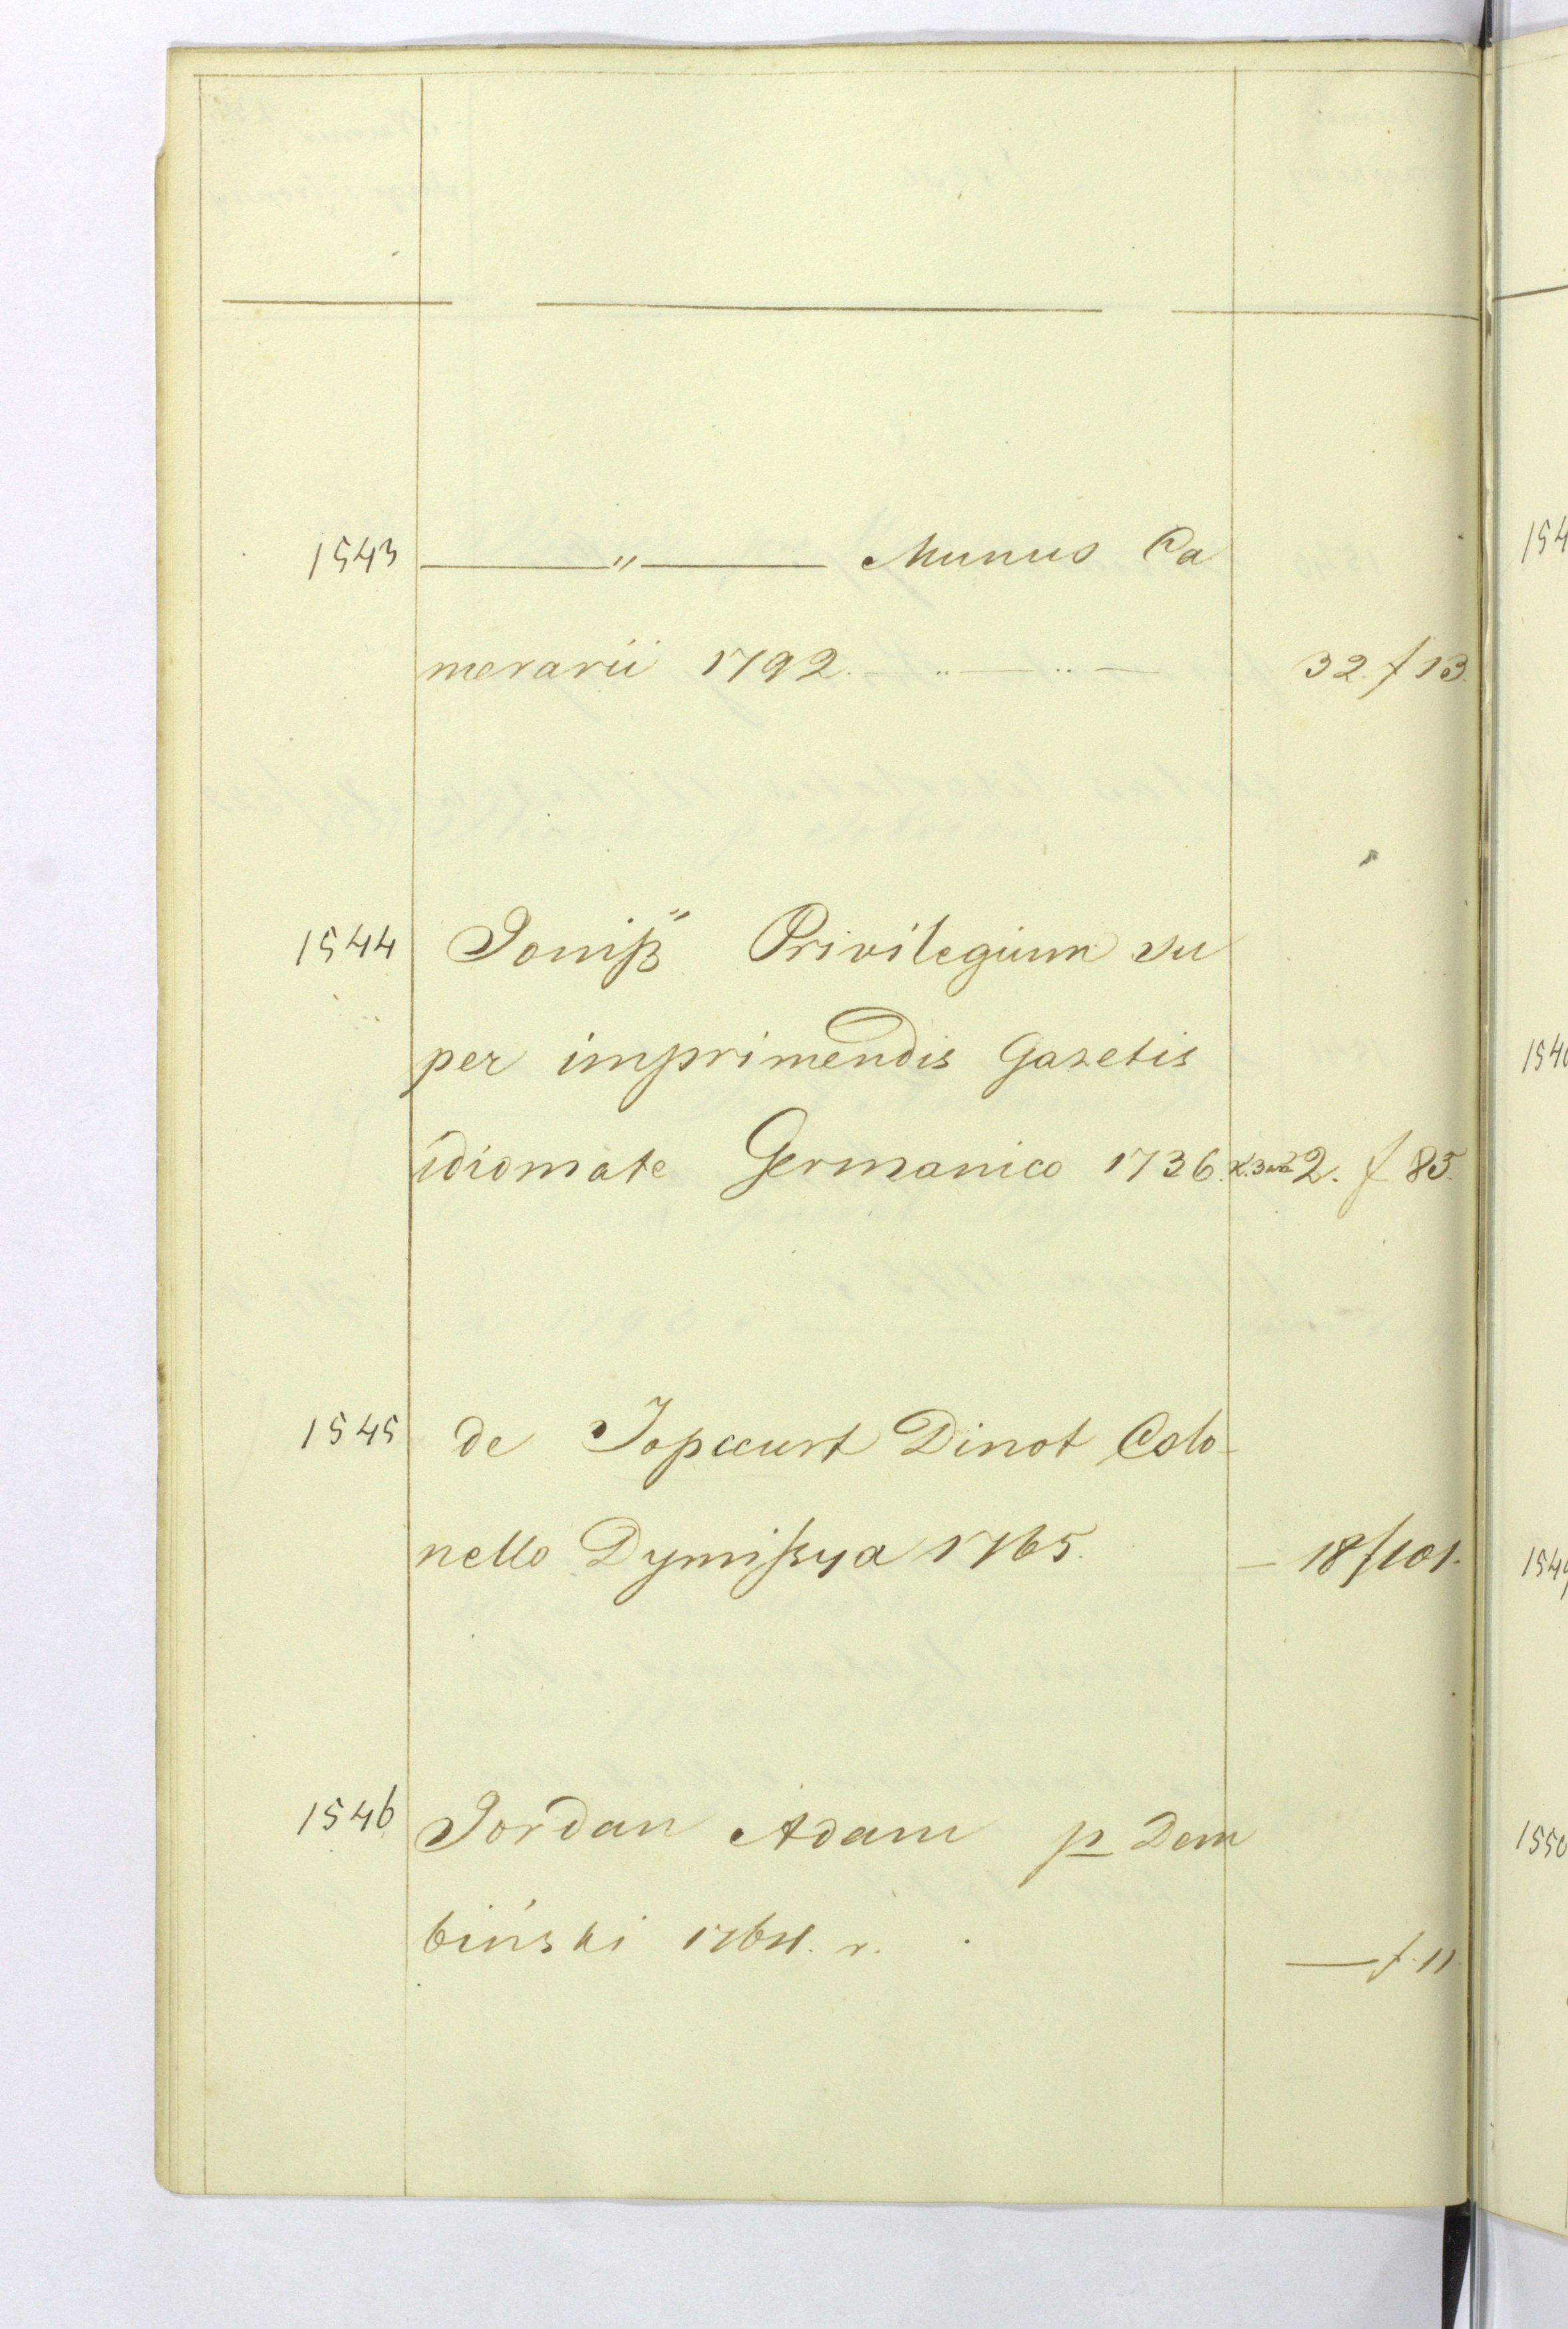 1543 —〃— Munus Ca
merarii 1792. — .. — .. — 32. f 13.
1544 Joniß Privilegium su
per imprimendis Gazetis
idiomate Germanico 1736. 2. f 85.
1545 de Dinot Colo-
nello Dymißya 1765. — 18 f 101.
1546 Jordan Adam p Dem
biński 1764. r. — f. 11.
154
154
154
1550